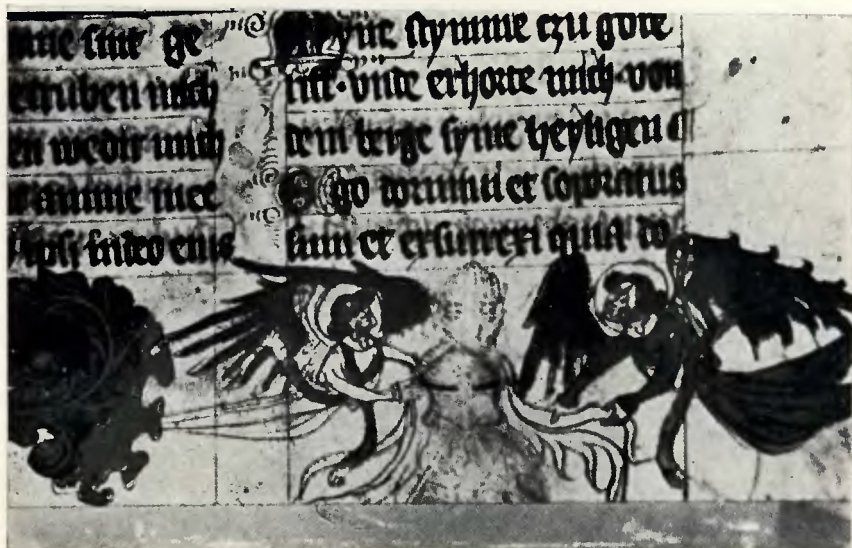 sint ge
etruben mich
en wedir mich
anime mee
ipsi in deo eius
stymme czu gote
riff · vnde erhorte mich von
dem berge syme heyligen
Ego dormiui et soporatus
sum et exsurrexi quia do